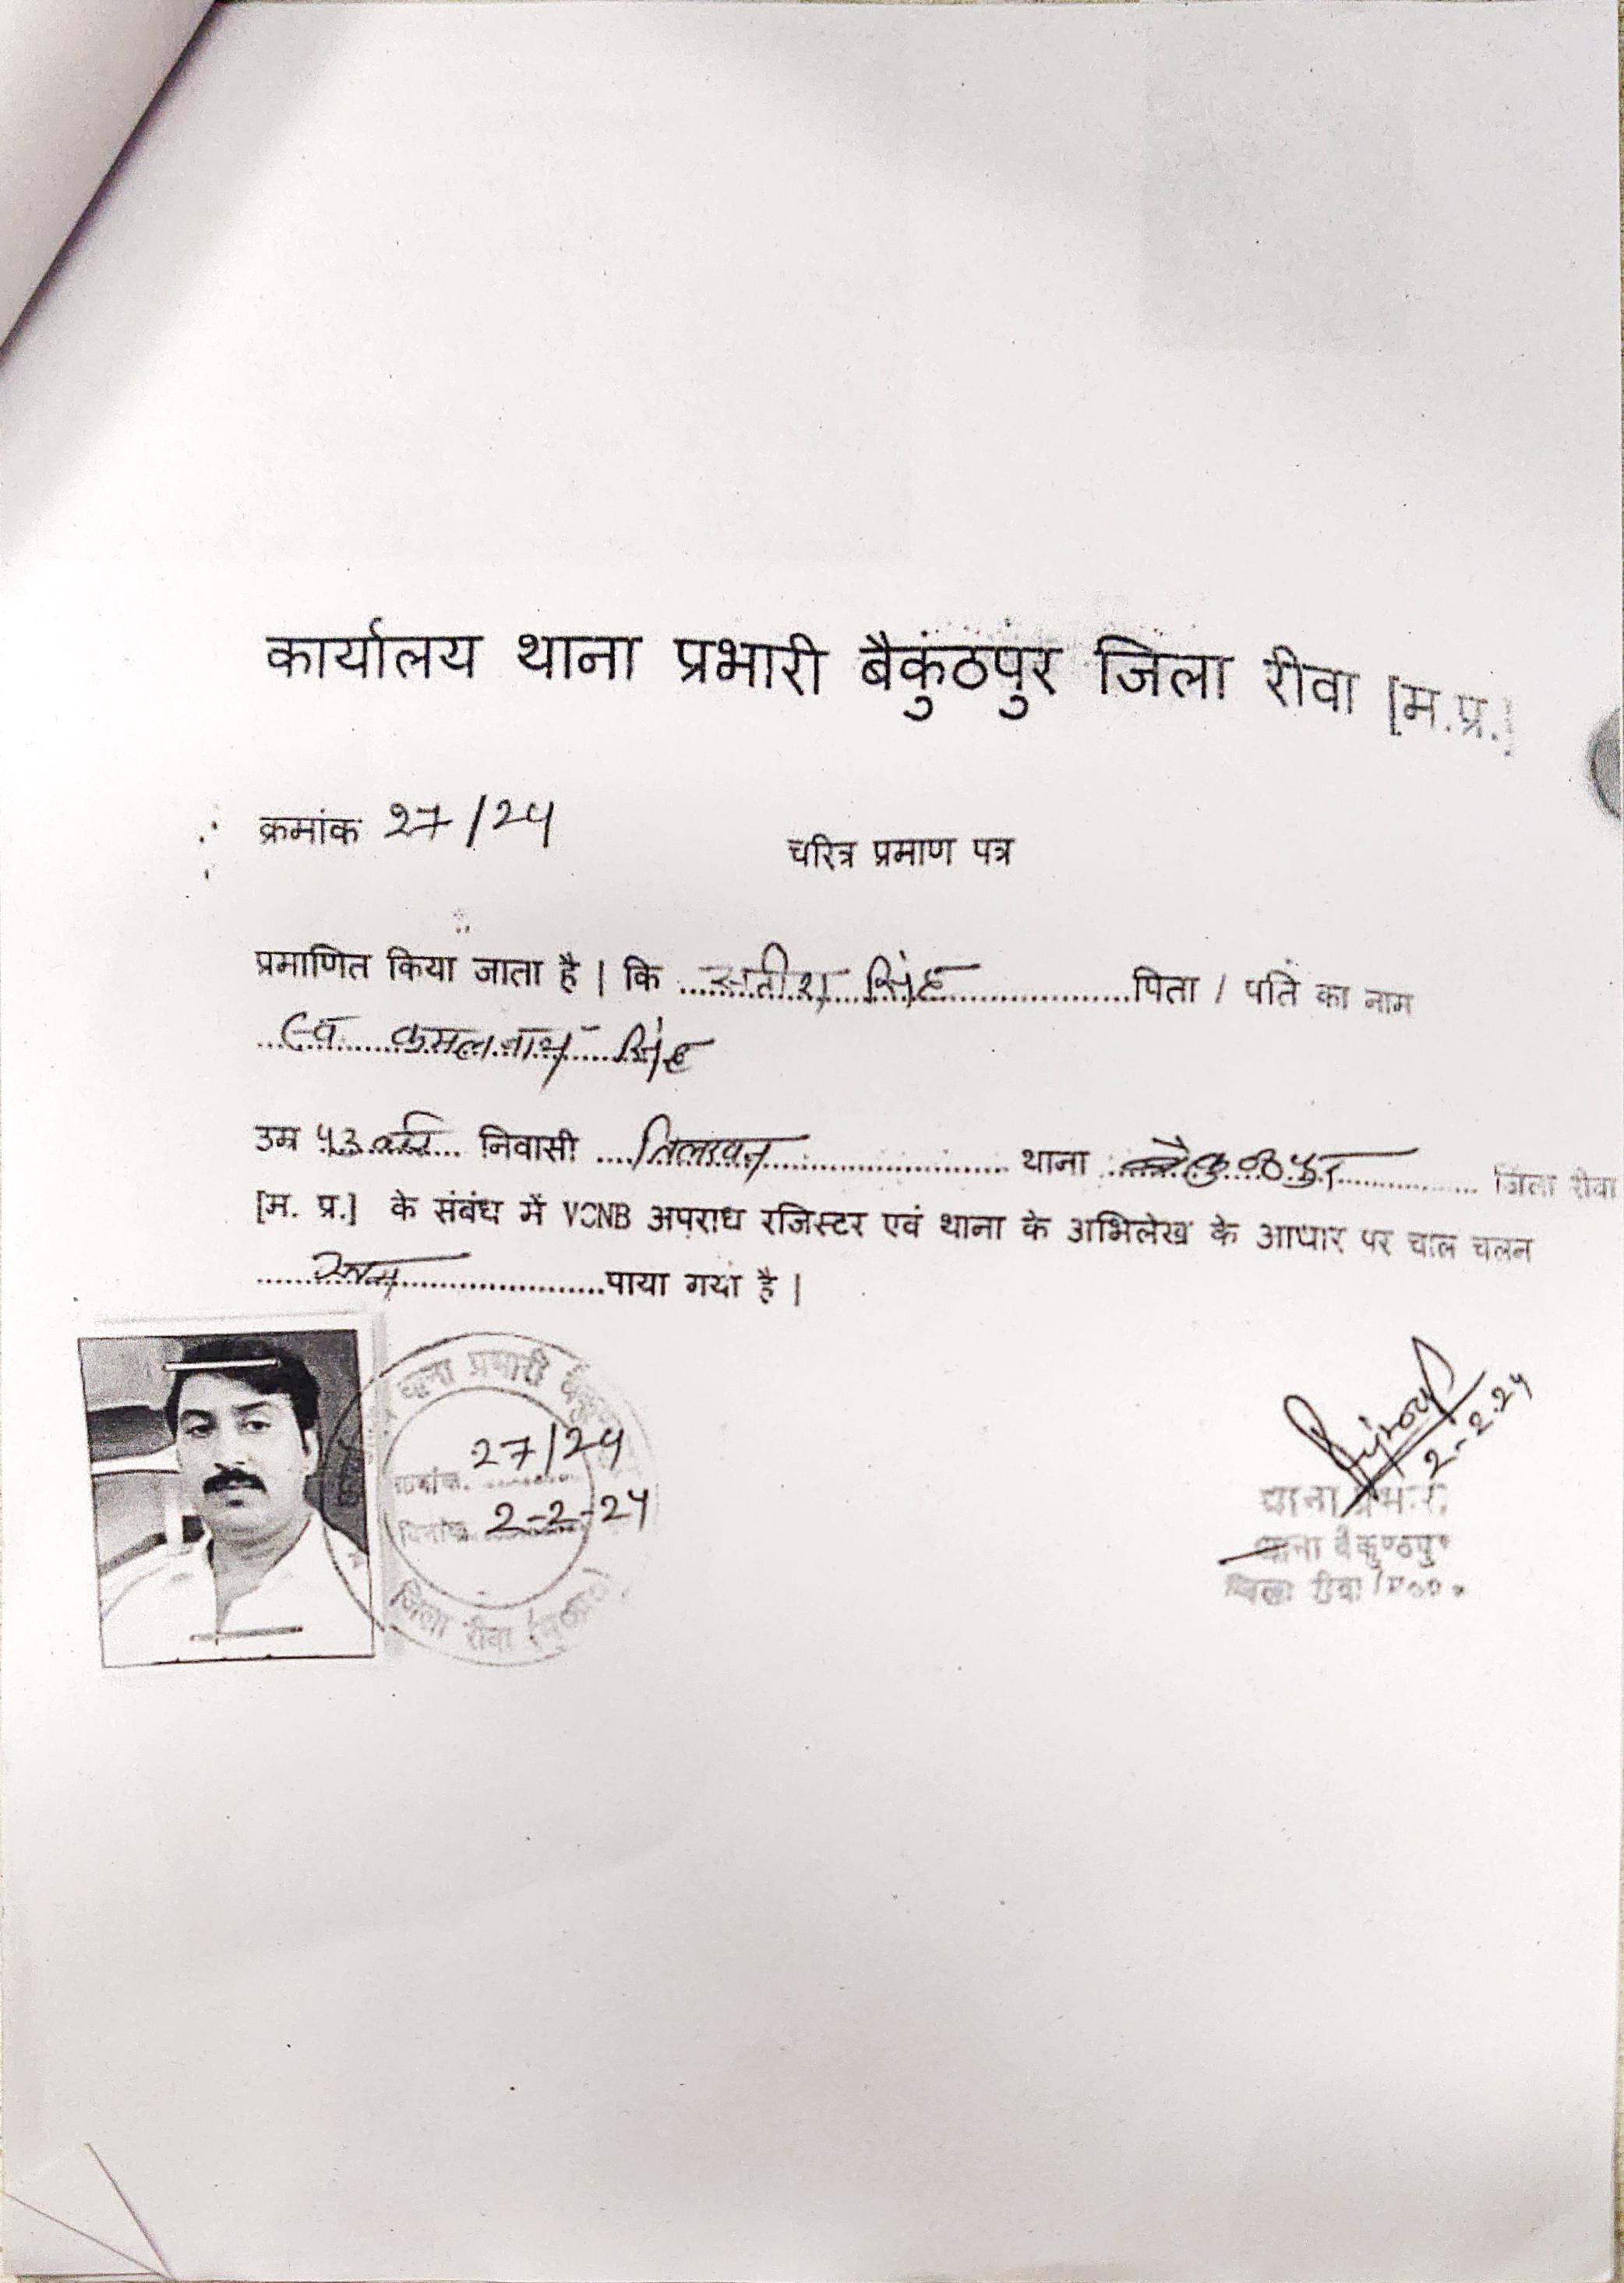 कार्यालय थाना प्रभारी बैकुंठपुर जिला रीवा [म.प्र.]
क्रमांक 27/24
चरित्र प्रमाण पत्र
प्रमाणित किया जाता है | कि ....सतीश सिंह....पिता / पति का नाम
....स्व कमलनाथ सिंह
उम्र 53 वर्ष... निवासी .... थाना ....बैकुण्ठपुर.... जिला रीवा
[म. प्र.] के संबंध में VCNB अपराध रजिस्टर एवं थाना के अभिलेख के आधार पर चाल चलन
....पाया गया है |
थाना प्रभारी
क्रमांक. 27/24
दिनांक 2-2-24
जिला रीवा
2-2-24
थाना प्रभारी
थाना बैकुण्ठपुर
जिला रीवा